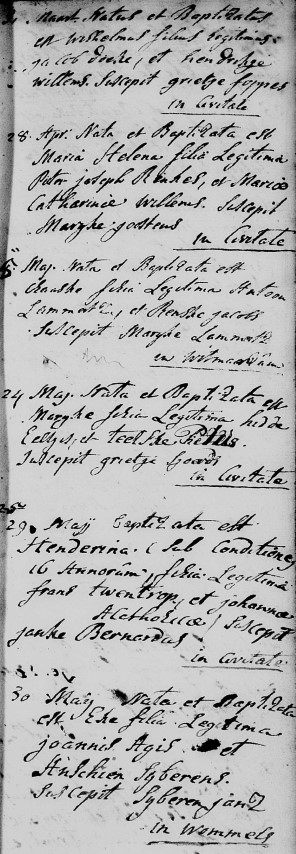 Maart. Natus et Baptizatus
est Wilhelmus filius legitimus
jacob et hendrikje
willems. Suscepit grietje
in Civitate
28. Apr. Nata et Baptizata est
Maria Helena filia Legitima
Petri joseph et Mariæ
Catharinæ Willems. Suscepit
Maryke joostens
in Civitate
Maj. Nata et Baptizata est
filia Legitima Antoon
et Renske jacobs
Suscepit Maryke
in
24 Maj. Nata et Baptizata est
Maryke filia Legitima hidde
et
Suscepit grietje
in Civitate
29. Maji Baptizata est
Henderina. (Sub Conditione,
16 Annorum, filia Legitima
frans twentrop, et johannæ
Acatholicæ) Suscepit
janke Bernardus
in Civitate
30 Maji Nata et Baptizata
est Eke filia Legitima
joannis Agis et
Anschien Syberens
Suscepit Syberen janZ
in Wommels